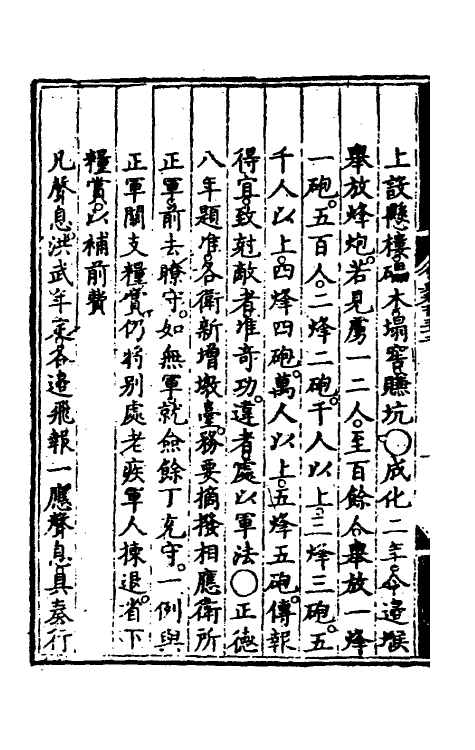 上設懸樓礌木塌窖賺坑〇成化二年令邊堠
舉放烽炮若見虜一二人至百餘人舉放一烽
一砲五百人二烽二砲千人以上三烽三砲五
千人以上四烽四砲萬人以上五烽五砲傳報
得宜致尅敵者准奇功違者處以軍法〇正德
八年題准各衛新增墩臺務要摘撥相應衛所
正軍前去瞭守如無軍就僉餘丁充守一例與
正軍關支糧賞仍將別處老疾軍人揀退省下
糧賞以補前費
凡聲息洪武年定各邊飛報一應聲息具奏行